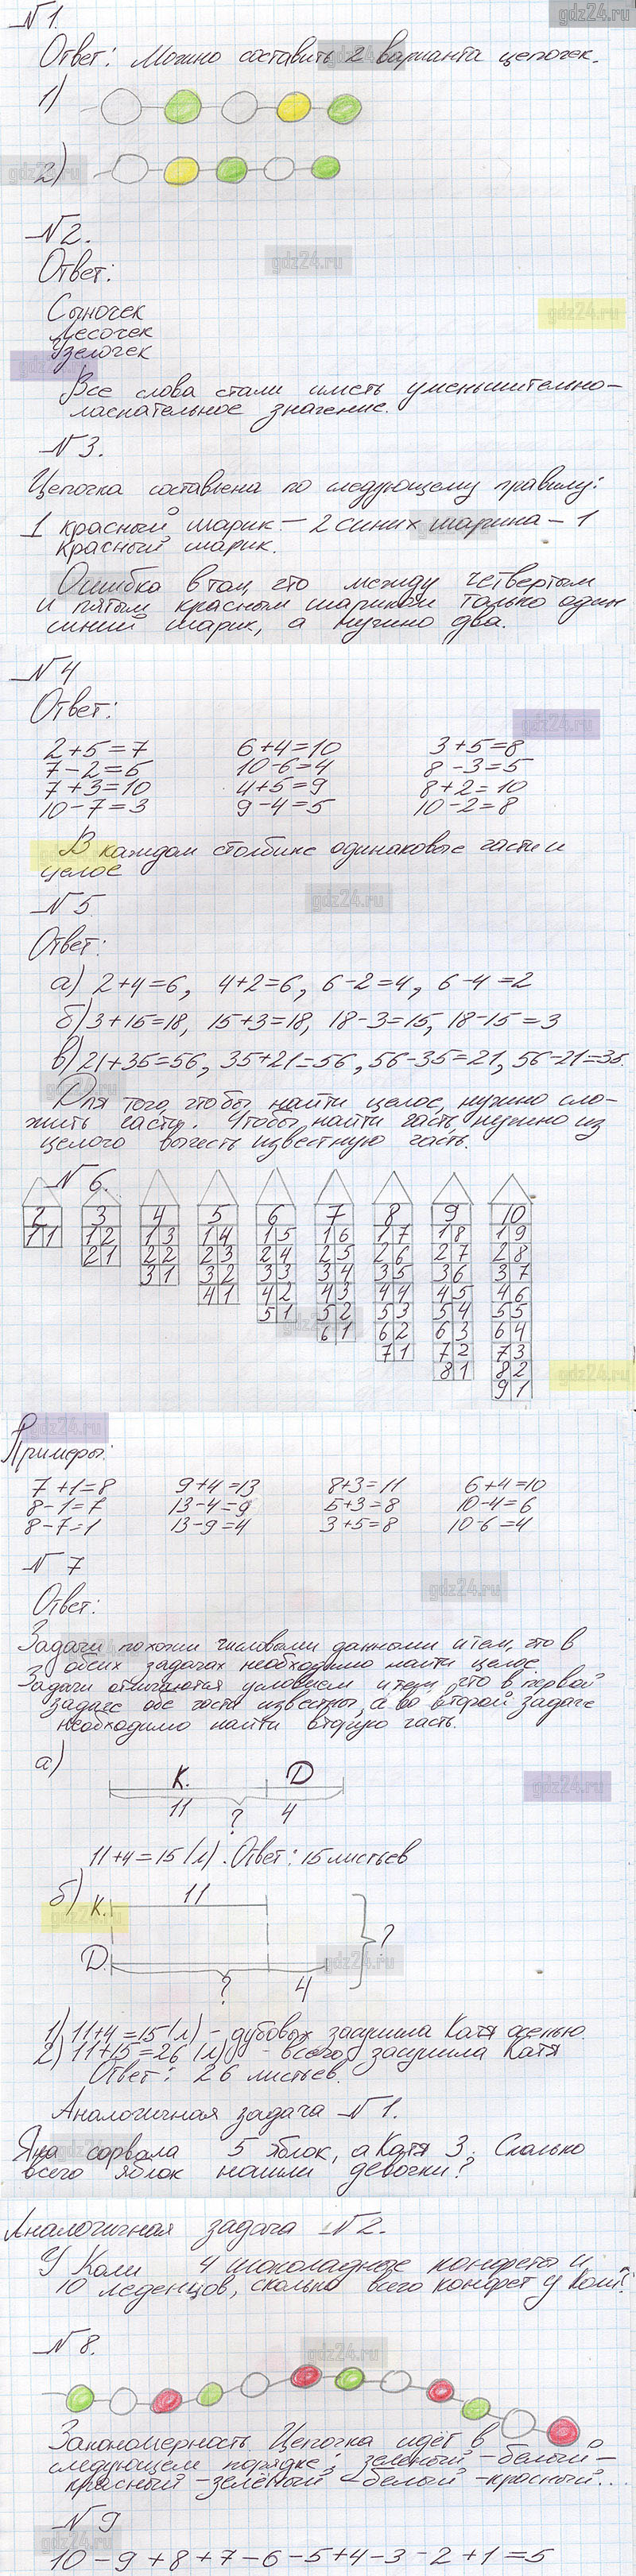 gdz24.ru
№1.
Ответ: Можно составить 2 варианта цепочек.
1)
2)
№2.
Ответ:
Сыночек
Лесочек
Узелочек
Все слова стали иметь уменьшительно-
ласкательное значение.
№3.
Цепочка составлена по следующему правилу:
1 красный шарик – 2 синих шарика – 1
красный шарик.
Ошибка в том, что между четвертым
и пятым красным шариком только один
синий шарик, а нужно два.
№4
Ответ:
2+5=7 6+4=10 3+5=8
7-2=5 10-6=4 8-3=5
7+3=10 4+5=9 8+2=10
10-7=3 9-4=5 10-2=8
В каждом столбике одинаковые части и
целое
№5
Ответ:
а) 2+4=6, 4+2=6, 6-2=4, 6-4=2
б) 3+15=18, 15+3=18, 18-3=15, 18-15=3
в) 21+35=56, 35+21=56, 56-35=21, 56-21=35.
Для того, чтобы найти целое, нужно сло-
жить части. Чтобы найти часть, нужно из
целого вычесть известную часть.
№6.
2 3 4 5 6 7 8 9 10
1 1 1 2 1 3 1 4 1 5 1 6 1 7 1 8 1 9
2 1 2 2 2 3 2 4 2 5 2 6 2 7 2 8
3 1 3 2 3 3 3 4 3 5 3 6 3 7
4 1 4 2 4 3 4 4 4 5 4 6
5 1 5 2 5 3 5 4 5 5
6 1 6 2 6 3 6 4
7 1 7 2 7 3
8 1 8 2
9 1
Примеры:
7+1=8 9+4=13 8+3=11 6+4=10
8-1=7 13-4=9 5+3=8 10-4=6
8-7=1 13-9=4 3+5=8 10-6=4
№7
Ответ:
Задачи похожи числовыми данными и тем, что в
обеих задачах необходимо найти целое.
Задачи отличаются условием и тем, что в первой
задаче обе части известны, а во второй задаче
необходимо найти вторую часть.
а)
К. D
11 ? 4
11+4=15 (л). Ответ: 15 листьев
б)
К. 11
?
D.
? 4
1) 11+4=15 (л) – дубовых засушила Катя осенью.
2) 11+15=26 (л) – всего засушила Катя
Ответ: 26 листьев.
Аналогичная задача №1.
Яна сорвала 5 яблок, а Катя 3, Сколько
всего яблок нашли девочки?
Аналогичная задача №2.
У Коли 4 шоколадные конфеты и
10 леденцов, сколько всего конфет у Коли?
№8.
Закономерность. Цепочка идёт в
следующем порядке: зеленый – белый –
красный – зелёный – белый – красный...
№9
10-9+8+7-6-5+4-3-2+1=5